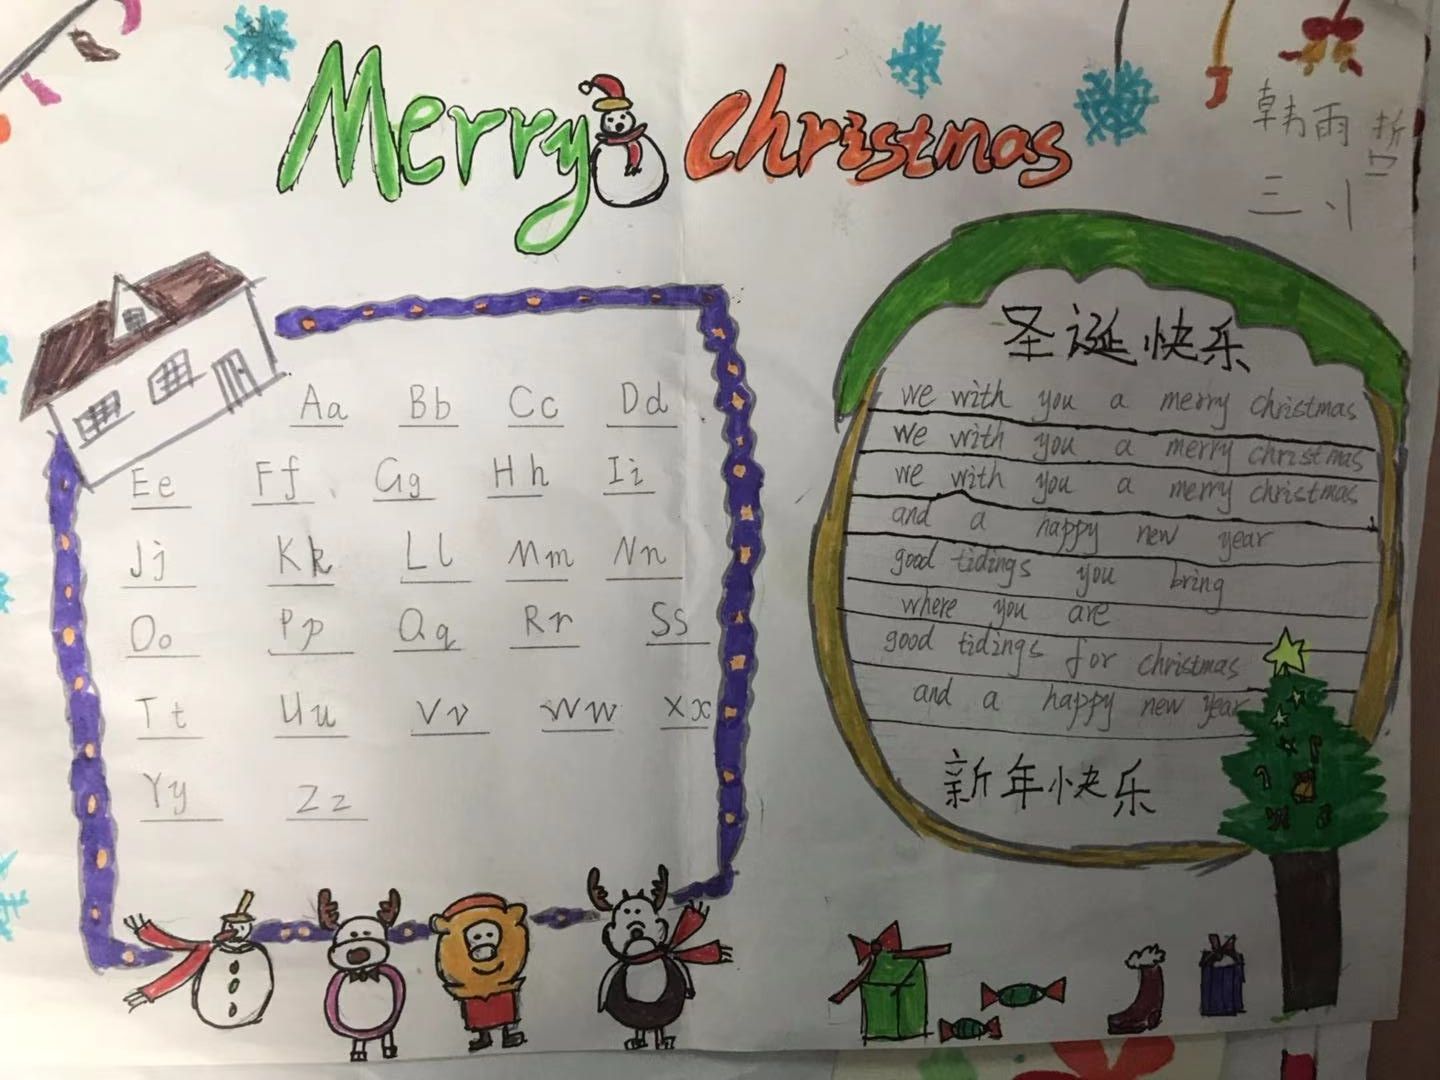 Merry christmas
韩雨哲
三、小
Aa Bb Cc Dd
Ee Ff Gg Hh Ii
Jj Kk Ll Mm Nn
Oo Pp Qq Rr Ss
Tt Uu Vv Ww Xx
Yy Zz
圣诞快乐
we with you a merry christmas
we with you a merry christmas
we with you a merry christmas
and a happy new year
good tidings you bring
where you are
good tidings for christmas
and a happy new year
新年快乐